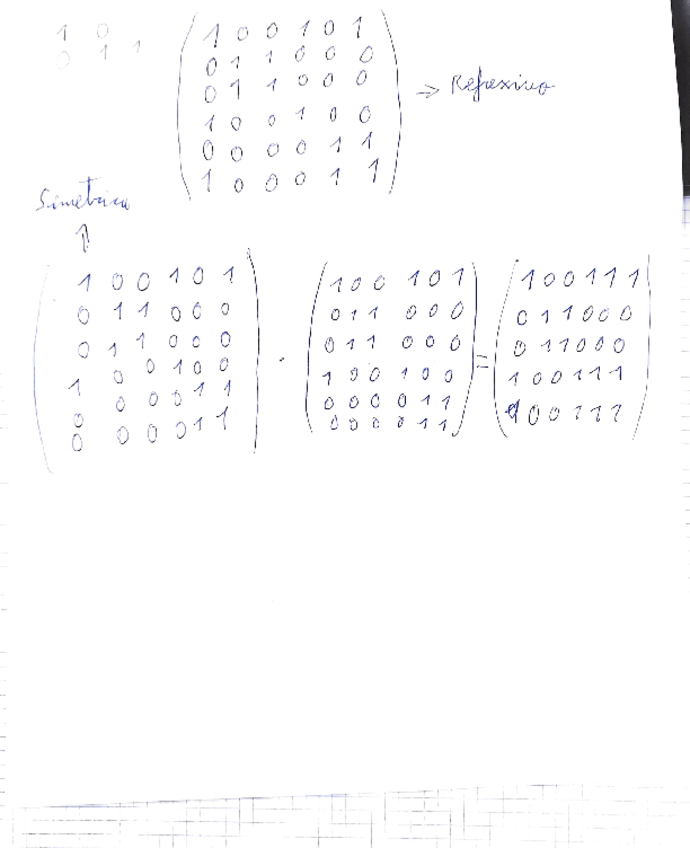 1 0
0 1 1
1 0 0 1 0 1
0 1 1 0 0 0
0 1 1 0 0 0
1 0 0 1 0 0
0 0 0 0 1 1
1 0 0 0 1 1
⇒ Refexivo
Simetrica
⇑
1 0 0 1 0 1
0 1 1 0 0 0
0 1 1 0 0 0
1 0 0 1 0 0
0 0 0 0 1 1
0 0 0 0 1 1
·
1 0 0 1 0 1
0 1 1 0 0 0
0 1 1 0 0 0
1 0 0 1 0 0
0 0 0 0 1 1
0 0 0 0 1 1
=
1 0 0 1 1 1
0 1 1 0 0 0
0 1 1 0 0 0
1 0 0 1 1 1
1 0 0 1 1 1